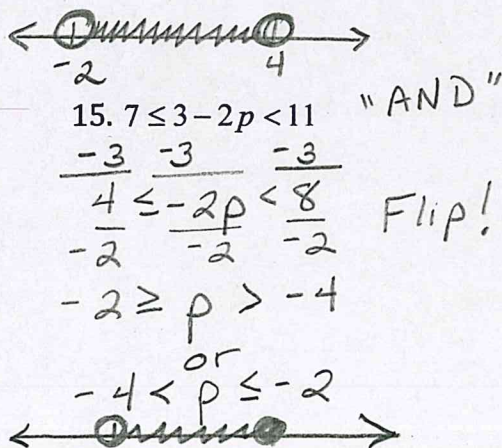 -2 4
15. 7 ≤ 3 – 2p < 11 "AND"
-3 -3 -3
4 ≤ -2p < 8 Flip!
-2 -2 -2
-2 ≥ p > -4
or
-4 < p ≤ -2